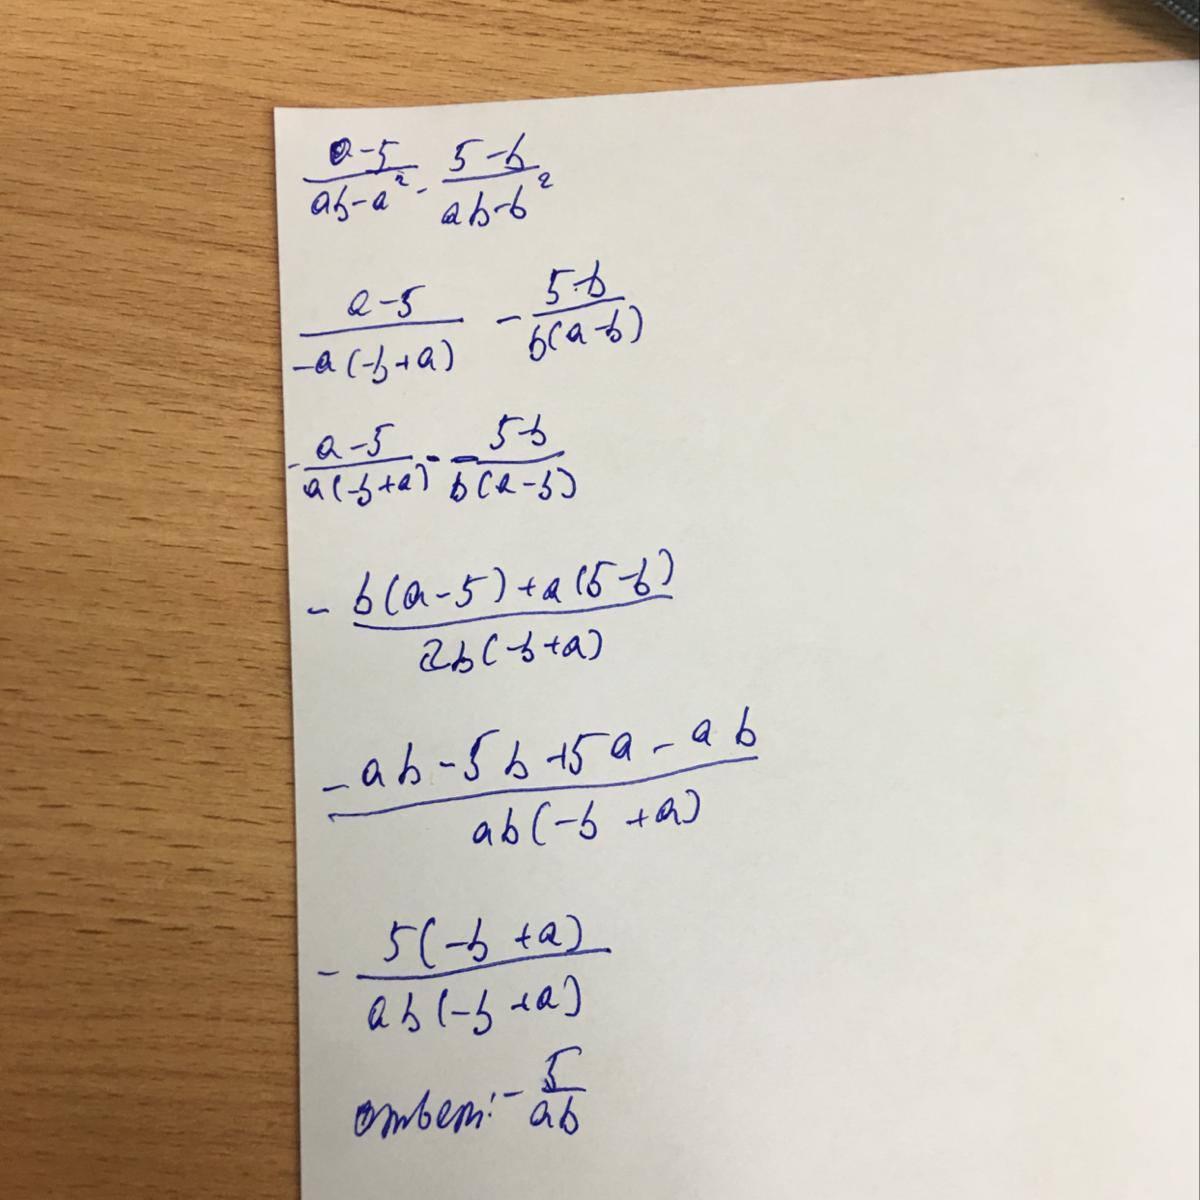 a-5/ab-a² - 5-b/ab-b²
a-5/-a(-b+a) - 5-b/b(a-b)
- a-5/a(-b+a) - - 5-b/b(a-b)
- b(a-5)+a(5-b)/ab(-b+a)
- ab-5b+5a-ab/ab(-b+a)
- 5(-b+a)/ab(-b+a)
ответ: - 5/ab